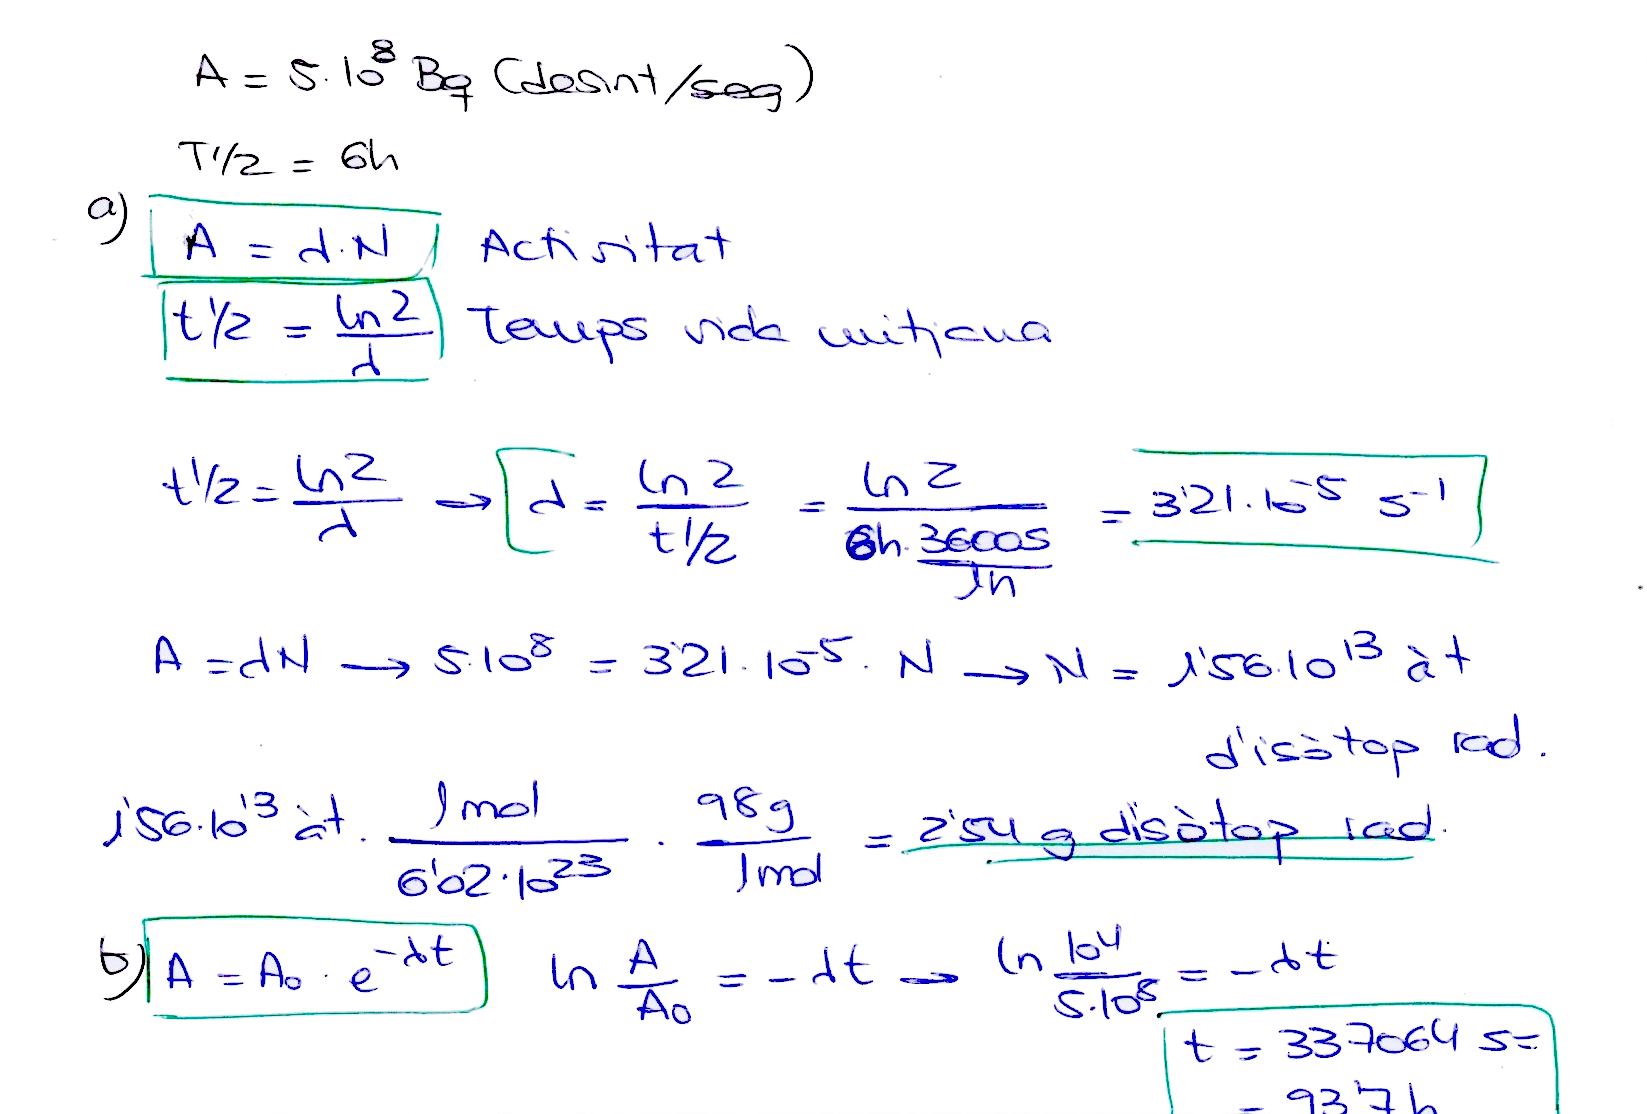 A = 5·10⁸ Bq (desint/seg)
T1/2 = 6h
a) A = λ·N Activitat
t1/2 = ln2/λ Temps vida mitjana
t1/2 = ln2/λ → λ = ln 2/t1/2 = ln 2/(6h · 3600s/1h) = 3'21·10⁻⁵ s⁻¹
A = λN → 5·10⁸ = 3'21·10⁻⁵ · N → N = 1'56·10¹³ àt
d'isòtop rad.
1'56·10¹³ àt · 1 mol/6'02·10²³ · 98g/1mol = 2'54 g d'isòtop rad.
b) A = A₀ · e^(-λt) ln A/A₀ = -λt → ln 10⁴/5·10⁸ = -λt
t = 337064 s =
= 93'7 h